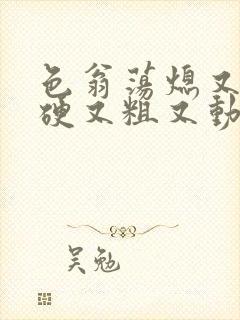 色翁荡熄又
硬又粗又動
吴勉